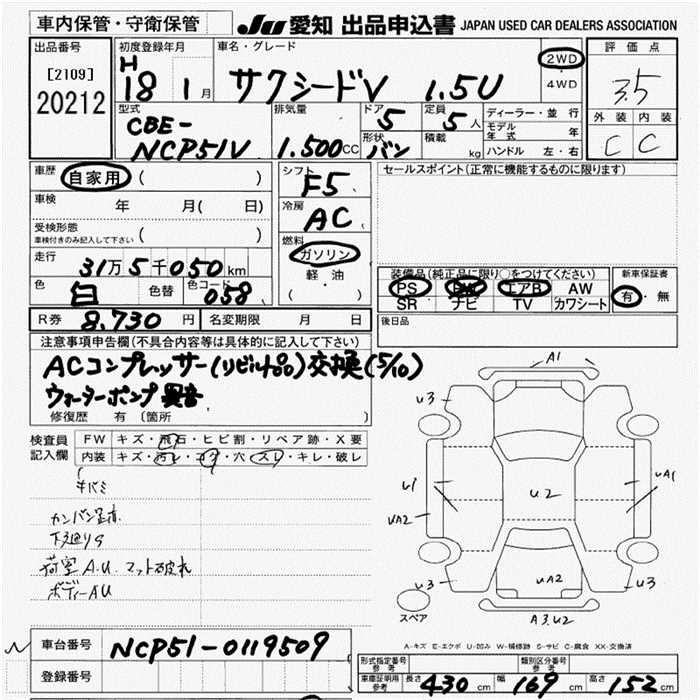 車内保管・守衛保管 JU 愛知 出品申込書 JAPAN USED CAR DEALERS ASSOCIATION
出品番号 初度登録年月 車名・グレード 評価点
[2109] H 2WD
20212 18 1月 サクシードV 1.5U ・ 3.5
4WD
型式 排気量 ドア 定員 ディーラー・並行 外装 内装
CBE- 5 5人 モデル年式 年 C C
NCP51V 1.500CC 形状 バン 積載 kg ハンドル 左・右
車歴 自家用 ( ) シフト F5 セールスポイント(正常に機能するものに限ります)
車検 年 月( 日) 冷房 AC
受検形態
車検付きのみ記入して下さい ( ) 燃料 ガソリン
走行 31万5千050km 軽・油 装備品(純正品に限り○をつけてください) 新車保証書
色 白 色替 色コード 058 ( ) PS PW エアB AW 有・無
SR ナビ TV カワシート
R券 8.730円 名変期限 月 日 後日品
注意事項申告欄(不具合内容等は具体的に記入して下さい)
ACコンプレッサー(リビルト品)交換(5/10) A1
ウォーターポンプ異音 U3 U3
修復歴 有 (箇所 )
検査員 FW キズ・飛石・ヒビ割・リペア跡・X要
記入欄 内装 キズ・汚レ・コゲ・穴・スレ・キレ・破レ
キバミ U1 U2 UA1
カンバン跡有 UA2
下廻りS
荷室A.U. マット破れ UA2
ボディーAU U3 U3
スペア A3.U2
A-キズ E-エクボ U-凹み W-補修跡 S-サビ C-腐食 XX-交換済
車台番号 NCP51-0119509
登録番号 形式指定番号 参考 類別区分番号 参考
車庫証明用 参考 長さ 430cm 幅 169cm 高さ 152cm